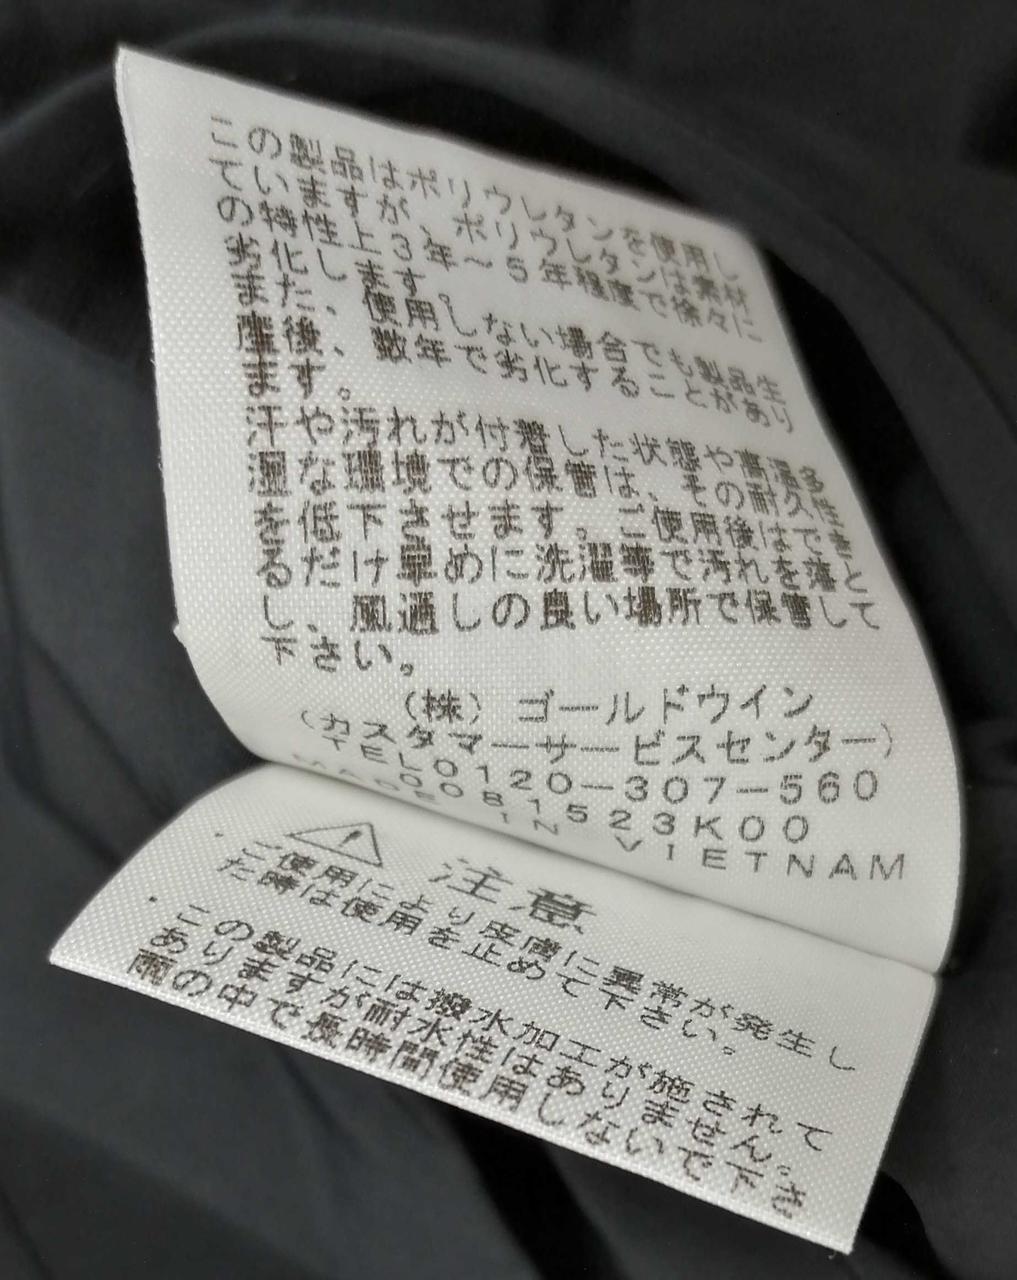 この製品はポリウレタンを使用し
ていますが、ポリウレタンは素材
の特性上3年～5年程度で徐々に
劣化します。
また、使用しない場合でも製品生
産後、数年で劣化することがあり
ます。
汗や汚れが付着した状態や高温多
湿な環境での保管は、その耐久性
を低下させます。ご使用後はでき
るだけ早めに洗濯等で汚れを落と
し、風通しの良い場所で保管して
下さい。
(株) ゴールドウイン
(カスタマーサービスセンター)
TEL0120-307-560
0081523K00
MADE IN VIETNAM
注意
・ご使用により皮膚に異常が発生し
た時は使用を止めて下さい。
・この製品には撥水加工が施されて
ありますが耐水性はありません。
雨の中で長時間使用しないで下さ